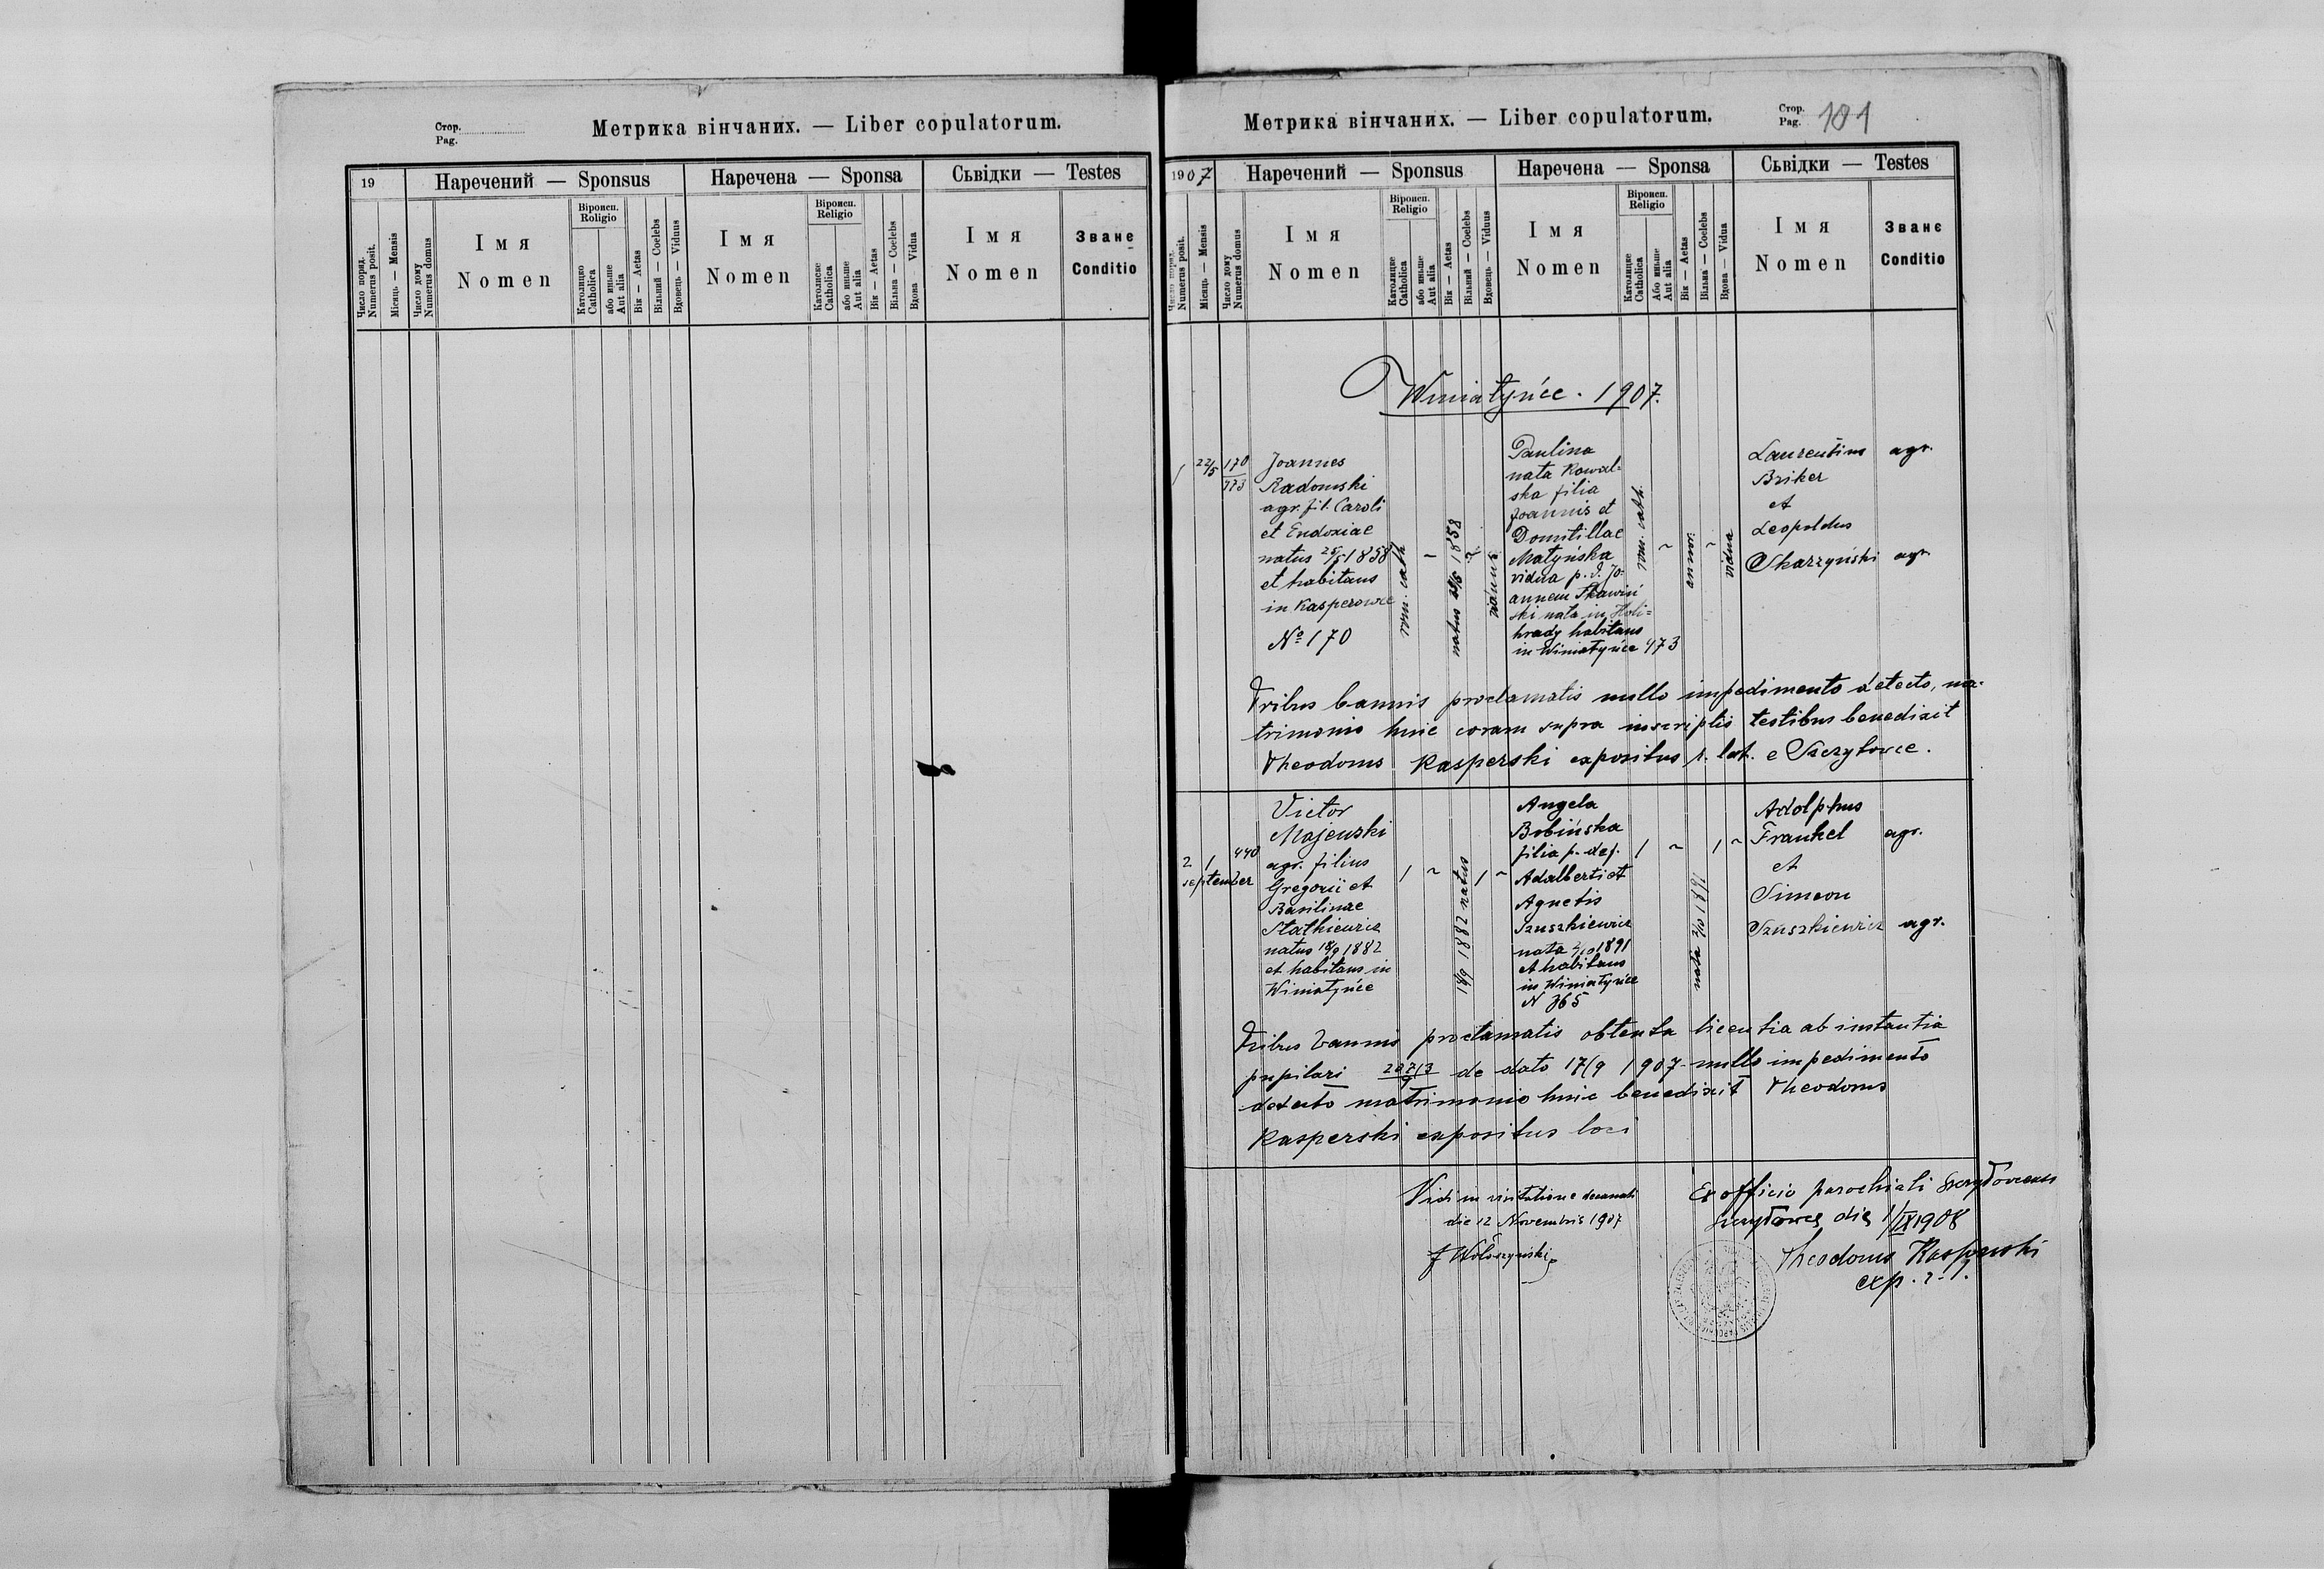 Стор.
Pag.
Метрика вінчаних. — Liber copulatorum.
19
Наречений — Sponsus
Наречена — Sponsa
Сьвідки — Testes
Число поряд.
Numerus posit.
Місяць — Mensis
Число дому
Numerus domus
Імя
Nomen
Віроисп.
Religio
Католицко
Catholica
або иньше
Aut alia
Вік — Aetas
Вільний — Coelebs
Вдовець — Viduus
Імя
Nomen
Віроисп.
Religio
Католиске
Catholica
або иньше
Aut alia
Вік — Aetas
Вільна — Coelebs
Вдова — Vidua
Імя
Nomen
Званє
Conditio
Метрика вінчаних. — Liber copulatorum.
Стор.
Pag. 101
1907
Наречений — Sponsus
Наречена — Sponsa
Сьвідки — Testes
Число поряд.
Numerus posit.
Місяць — Mensis
Число дому
Numerus domus
Імя
Nomen
Віроисп.
Religio
Католицке
Catholica
або иньше
Aut alia
Вік — Aetas
Вільний — Coelebs
Вдовець — Viduus
Імя
Nomen
Віроисп.
Religio
Католицке
Catholica
Або иньше
Aut alia
Вік — Aetas
Вільна — Coelebs
Вдова — Vidua
Імя
Nomen
Званє
Conditio
Winiatyńce . 1907.
1
22/5
170
Joannes
Radomski
agr. fil. Caroli
et Eudoxiae
natus 25/5 1858
et habitans
in Kasperowce
No 170
rom. cath.
natus 1858
viduus
Paulina
nata Kowal=
ska filia
Joannis et
Domitillae
Matyńska
vidua p. d. Jo-
annem Skawiń
ski nata in Holi=
hrady habitans
in Winiatyńce 473
rom. cath.
annor.
vidua
Laurentius agr.
Briker
et
Leopoldus
Skarzyński agr.
Tribus bannis proclamatis nullo impedimento detecto, ma-
trimonio huic coram supra inscriptis testibus benedixit
Theodorus Kasperski expositus r. lat. e Szczytowce.
2 1 440
september
Victor
Majewski
agr. filius
Gregorii et
Basilinae
Statkiewicz
natus 18/9 1882
et habitans in
Winiatyńce
18/9 1882 natus
Angela
Bobińska
filia p. def.
Adalberti et
Agnetis
Szuszkiewicz
nata 2/10 1891
et habitans
in Winiatyńce
N 365
nata 2/10 1891
Adolphus
Frankel agr.
et
Simeon
Szuszkiewicz agr.
Tribus bannis proclamatis obtenta licentia ab instantia
pupilari de dato 17/9 1907 nullo impedimento
detecto matrimonio huic benedixit Theodorus
Kasperski expositus loci
Vidi in visitatione decanali
die 12 Novembris 1907
J Wołoszyński
Ex officio parochiali
Szczytowce die 1/IX 1908
Theodorus Kasperski
exp. r. l.